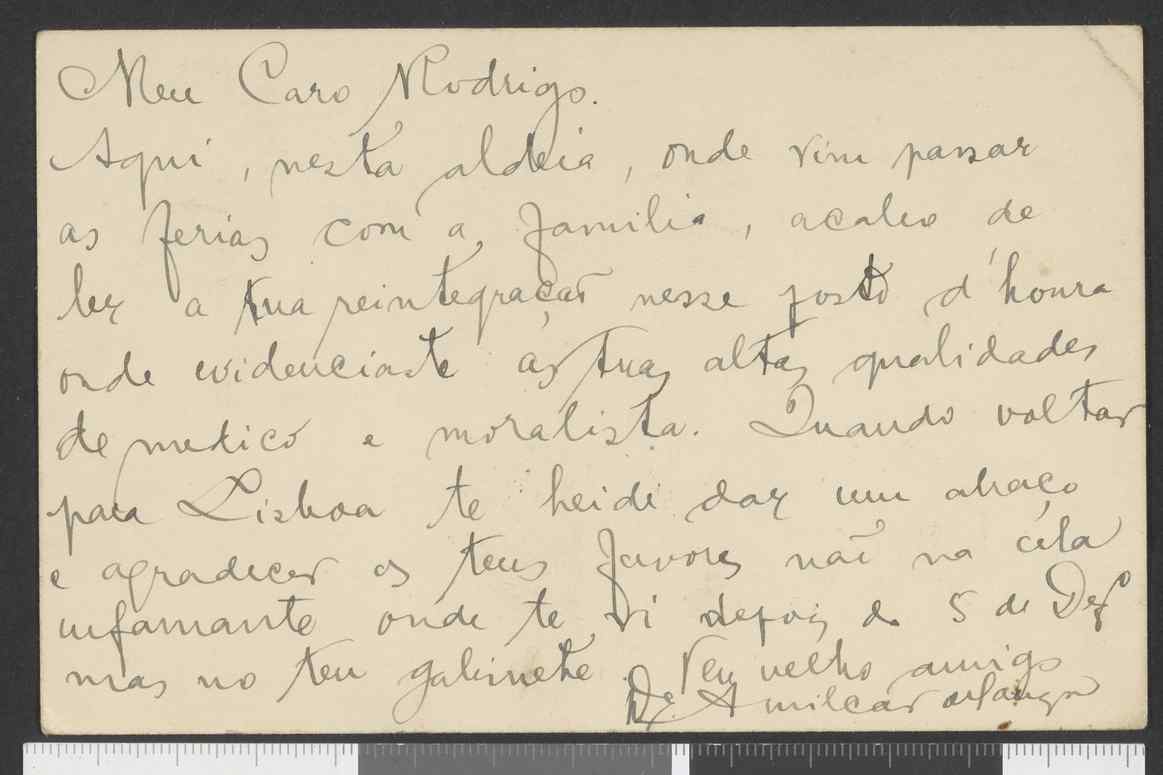 Meu Caro Rodrigo.
Aqui, nesta aldeia, onde vim passar
as ferias com a familia, acabo de
ler a tua reintegração nesse posto d'honra
onde evidenciaste as tuas altas qualidades
de medico e moralista. Quando voltar
para Lisboa te heide dar um abraço
e agradecer os teus favores não na cela
infamante onde te vi depois de 5 de Dezº
mas no teu gabinete. Teu velho amigo
Dr. Amilcar